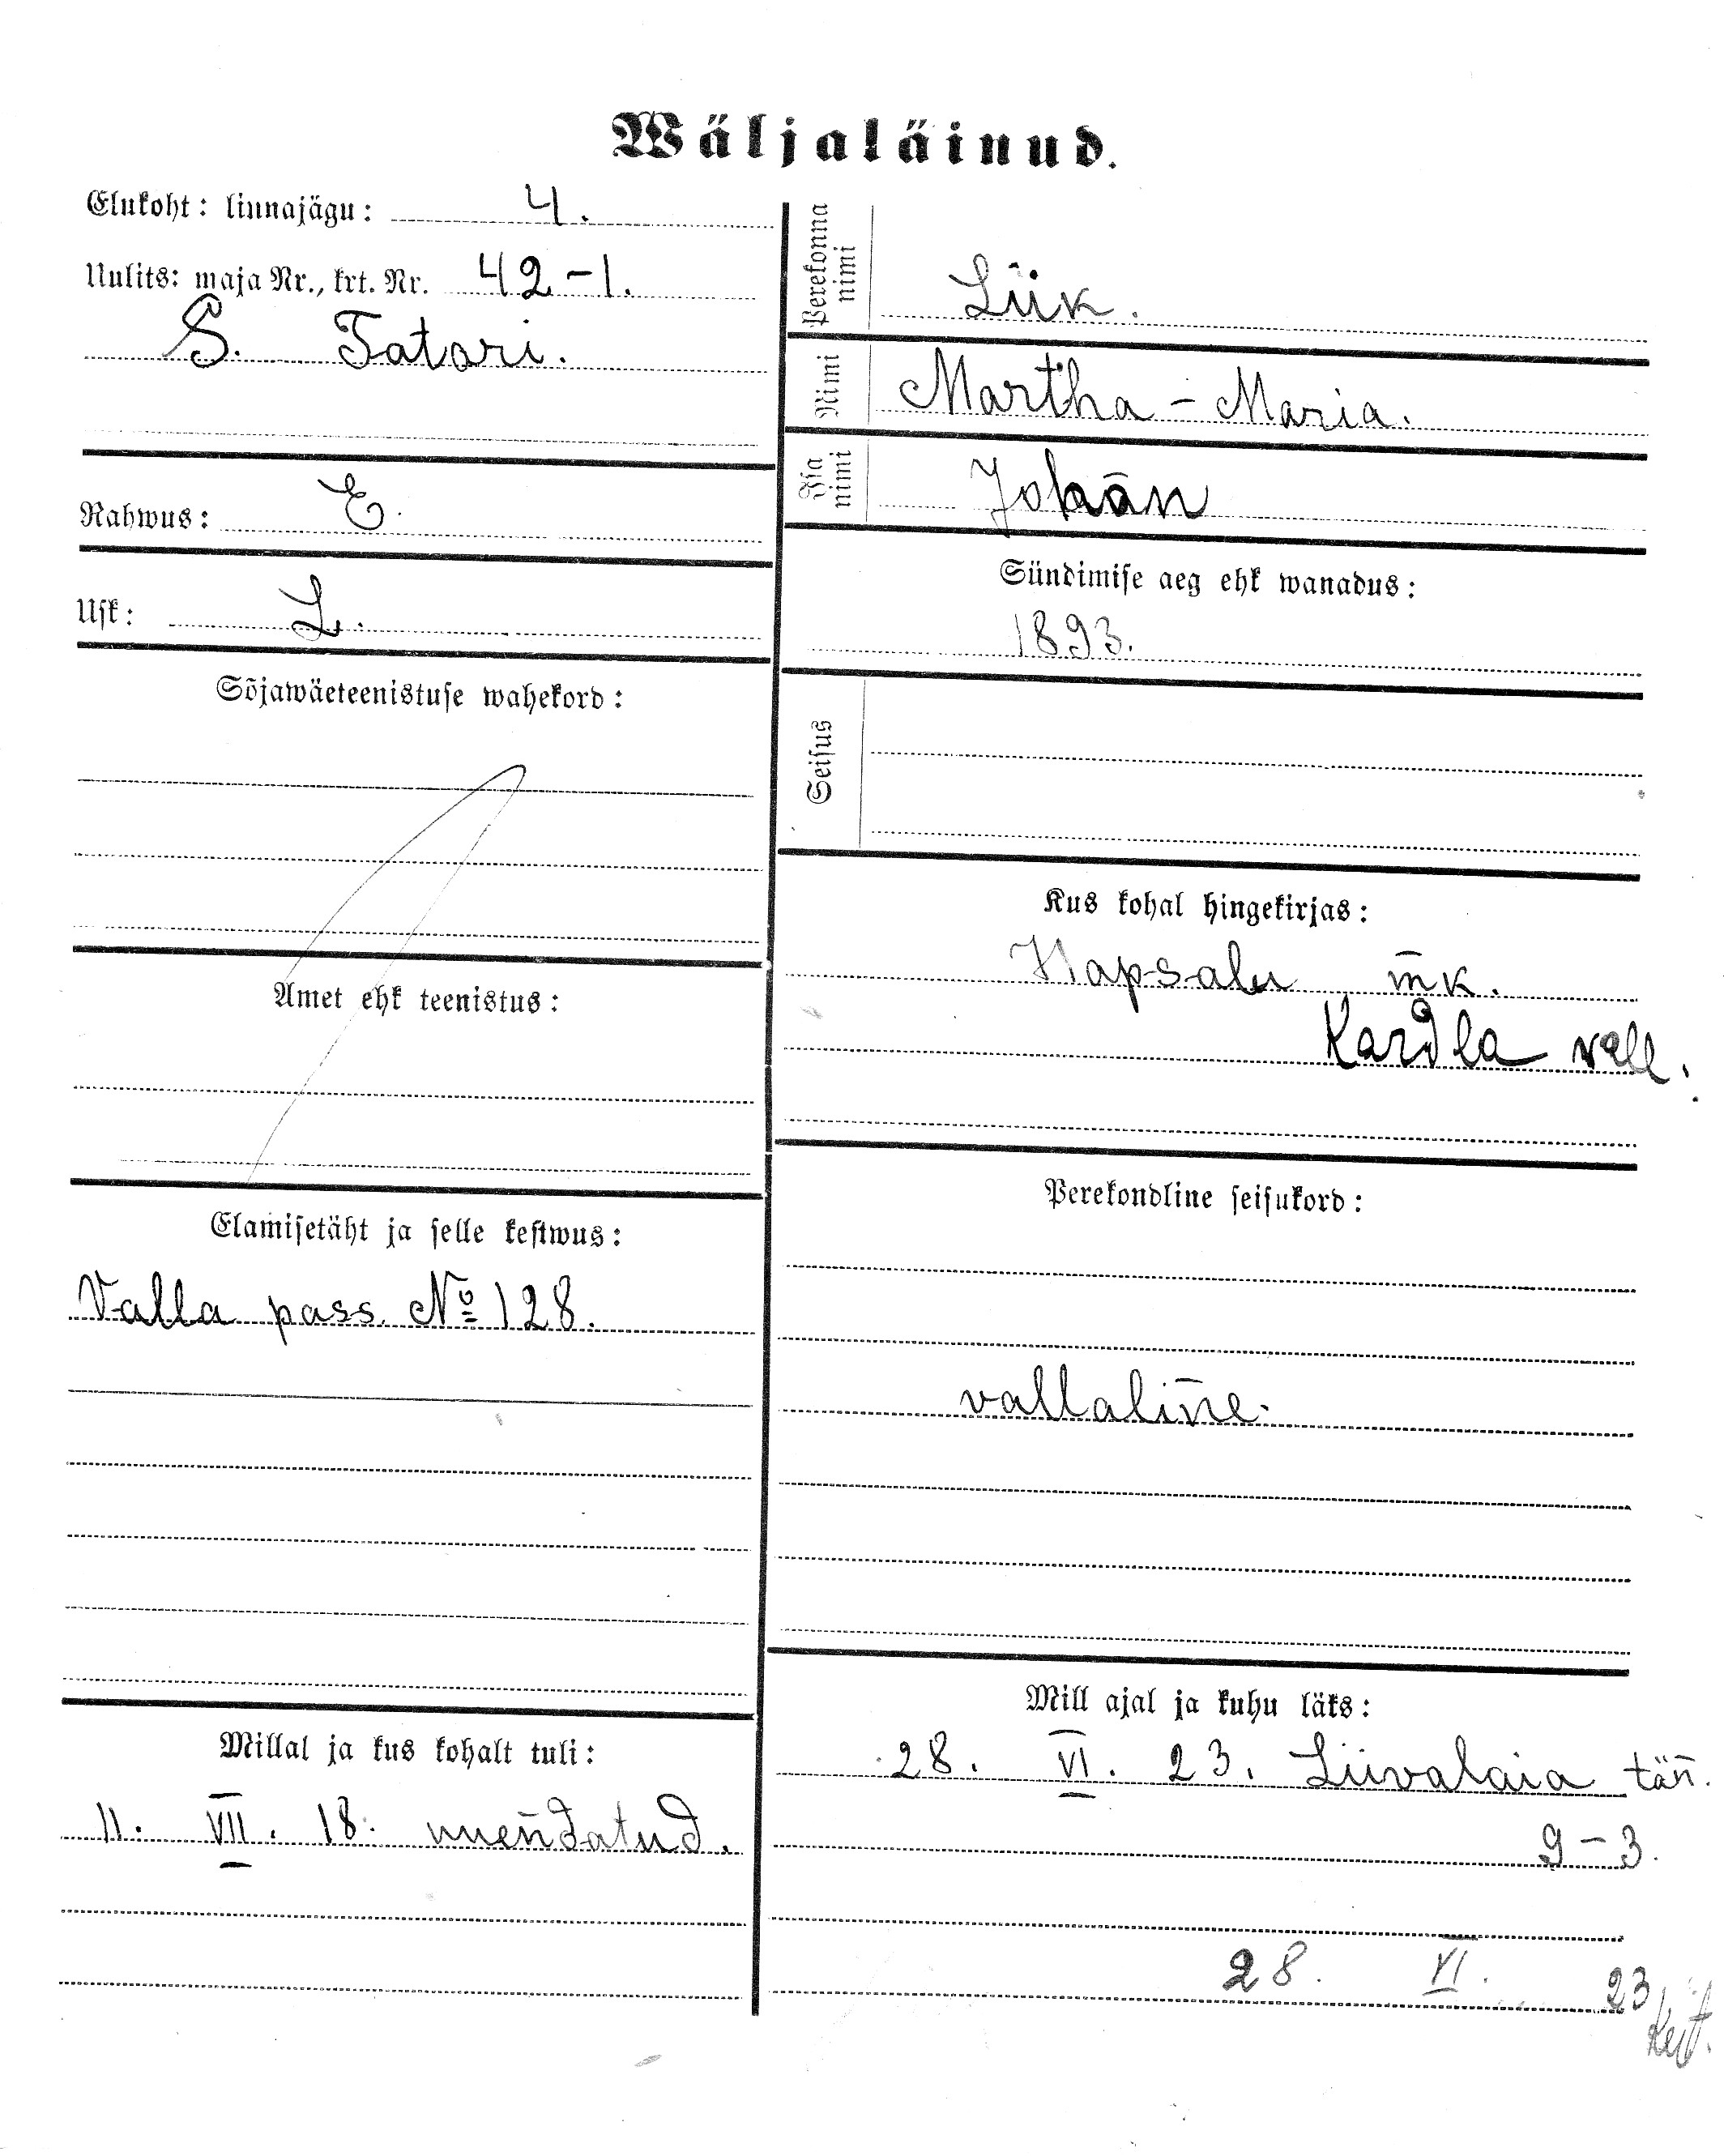 Wäljaläinud.
Elukoht: linnajägu: 4.
Uulits: maja Nr., krt. Nr. 42-1.
S. Tatari.
Rahwus: E.
Usk: L.
Sõjawäeteenistuse wahekord:
Amet ehk teenistus:
Elamisetäht ja selle kestwus:
Valla pass. № 128.
Millal ja kus kohalt tuli:
11. VII. 18. uuen̄datud.
Perekonna
nimi
Liik.
Nimi
Martha-Maria.
Isa
nimi
Johān
Sündimise aeg ehk wanadus:
1893.
Seisus
Kus kohal hingekirjas:
Hapsalu m̄k.
Kardla vall.
Perekondline seisukord:
vallalin̄e.
Mill ajal ja kuhu läks:
28. VI. 23. Liivalaia tän̄.
9-3.
28. VI. 23